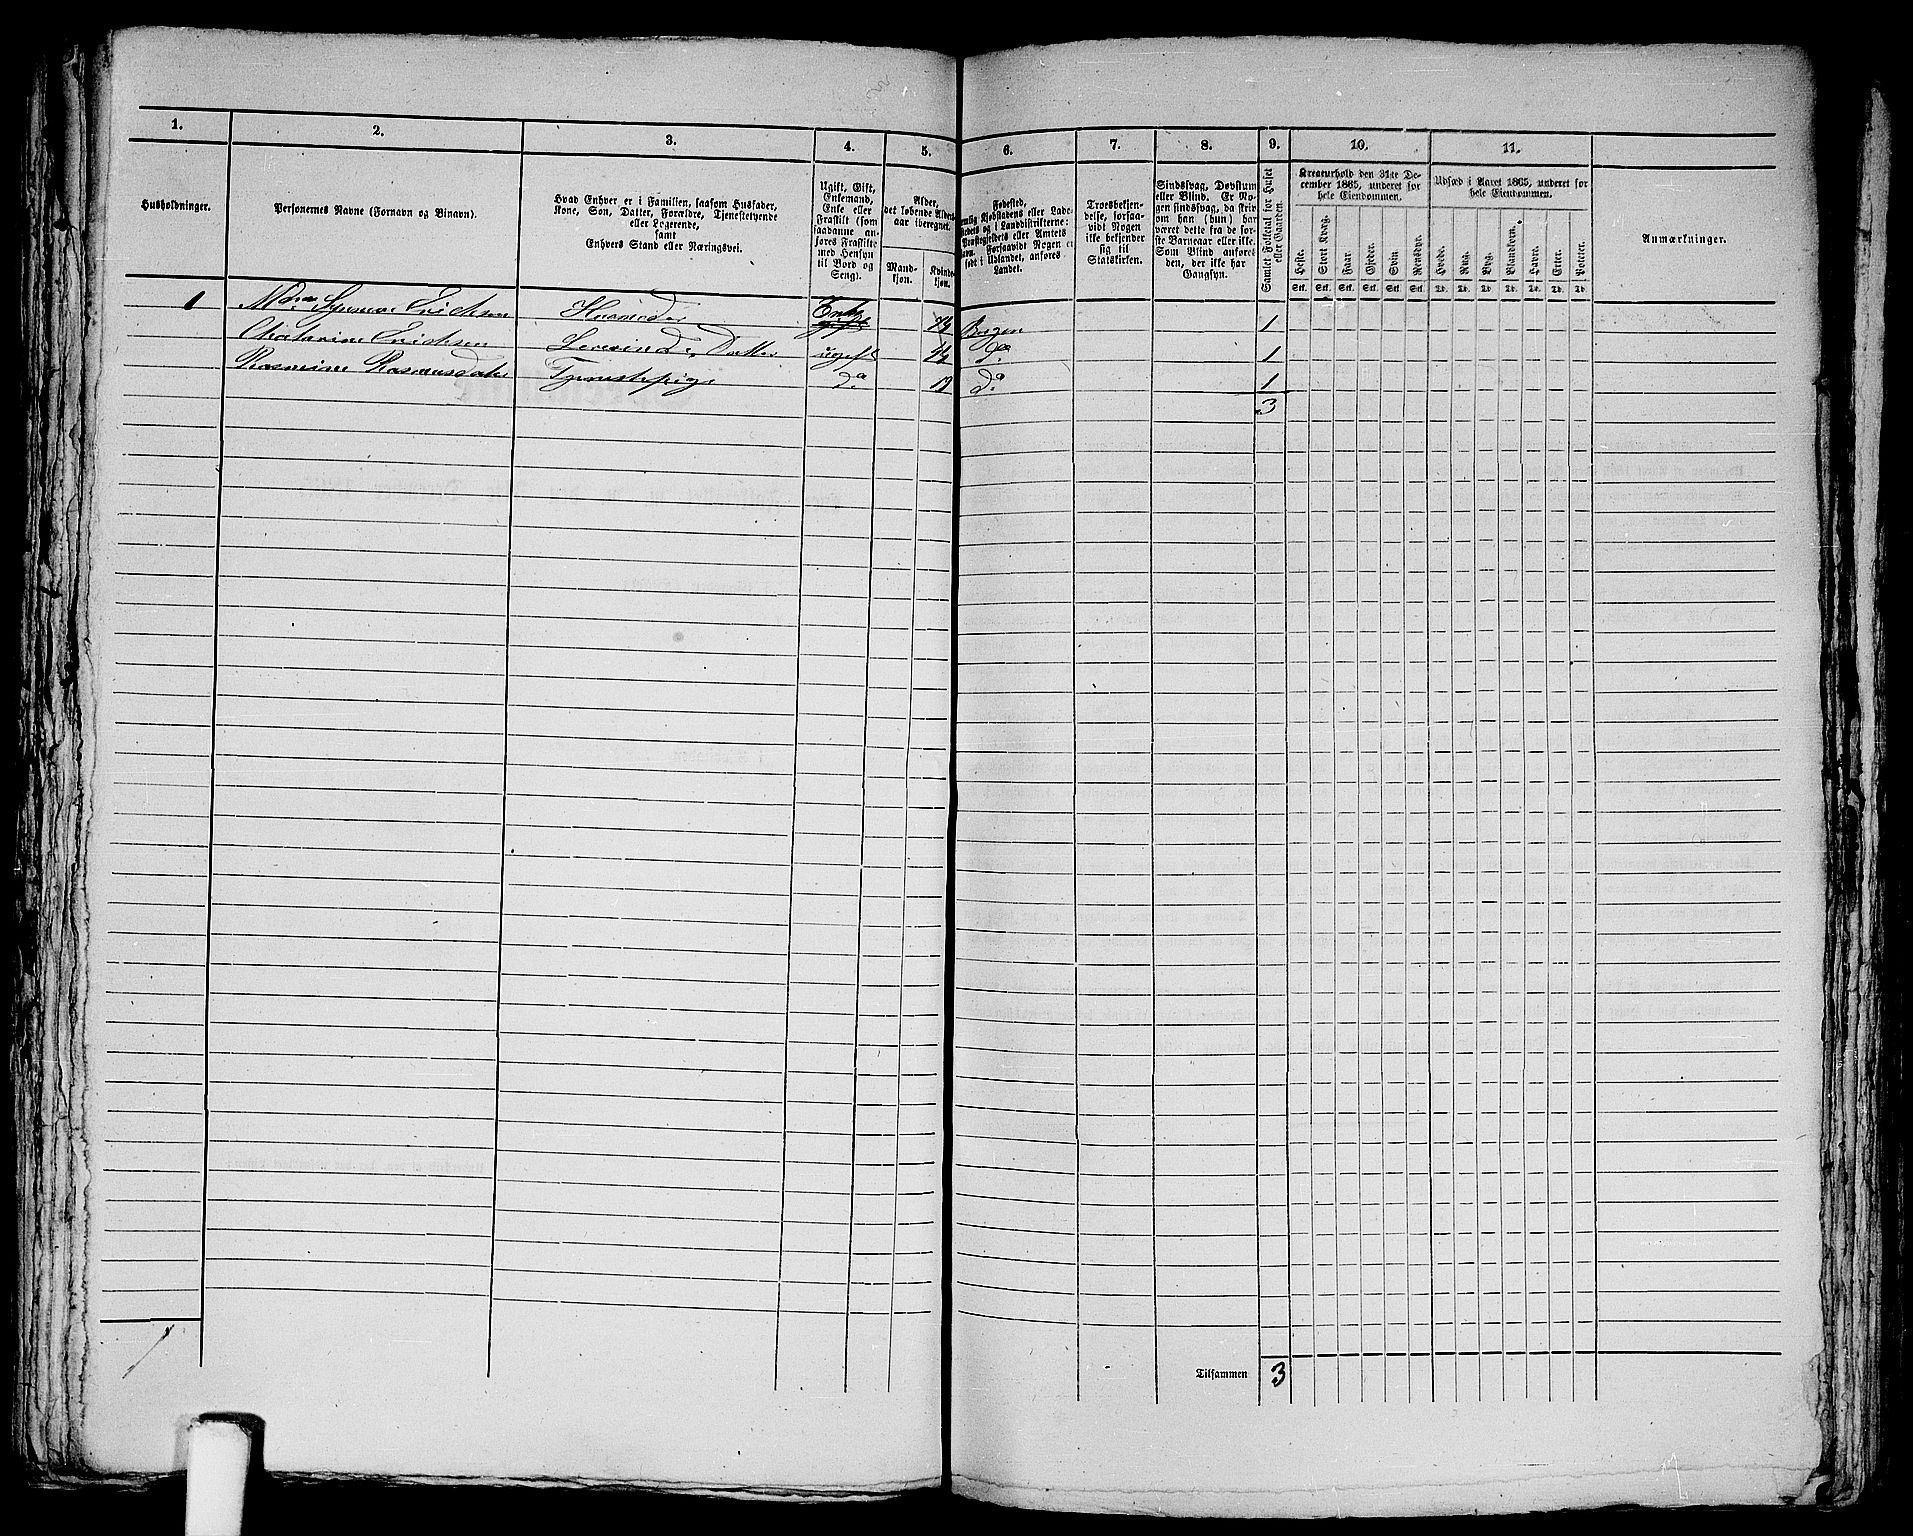 1. 2. 3. 4. 5. 6. 7. 8. 9. 10. 11.
Husholdninger.
Personernes Navne (Fornavn og Binavn).
Hvad Enhver er i Familien, saasom Husfader,
Kone, Søn, Datter, Forældre, Tjenestetyende
eller Logerende,
samt
Enhvers Stand eller Næringsvei.
Ugift, Gift,
Enkemand,
Enke eller
Fraskilt (som
saadanne an-
føres Fraskilte
med Hensyn
til Bord og
Seng).
Alder,
det løbende Alders-
aar iberegnet.
Mand-
kjøn.
Kvinde-
kjøn.
Fødested,
Kjøbstadens eller Lade-
stedets og i Landdistrikterne:
Præstegjeldets eller Amtets
Navn. Forsaavidt Nogen er
født i Udlandet, anføres
Landet.
Troesbekjen-
delse, forsaa-
vidt Nogen
ikke bekjender
sig til
Statskirken.
Sindssvag, Døvstum
eller Blind. Er No-
gen sindssvag, da skriv
om han (hun) har
været dette fra de før-
ste Barneaar eller ikke.
Som Blind anføres
den, der ikke har
Gangsyn.
Samlet Folketal for Huset
eller Gaarden.
Kreaturhold den 31te De-
cember 1865, underet for
hele Eiendommen.
Heste. Stort Kvæg. Faar. Gjeder. Svin. Rensdyr.
Stk. Stk. Stk. Stk. Stk. Stk.
Udsæd i Aaret 1865, underet for
hele Eiendommen.
Hvede. Rug. Byg. Blandkorn. Havre. Erter. Poteter.
Td. Td. Td. Td. Td. Td. Td.
Anmærkninger.
1 Erichsen Husmoder Enke Bergen 1
Erichsen Datter ugift do 1
Rasmine Rasmusdatter Tjenestepige do 19 do 1
3
Tilsammen 3